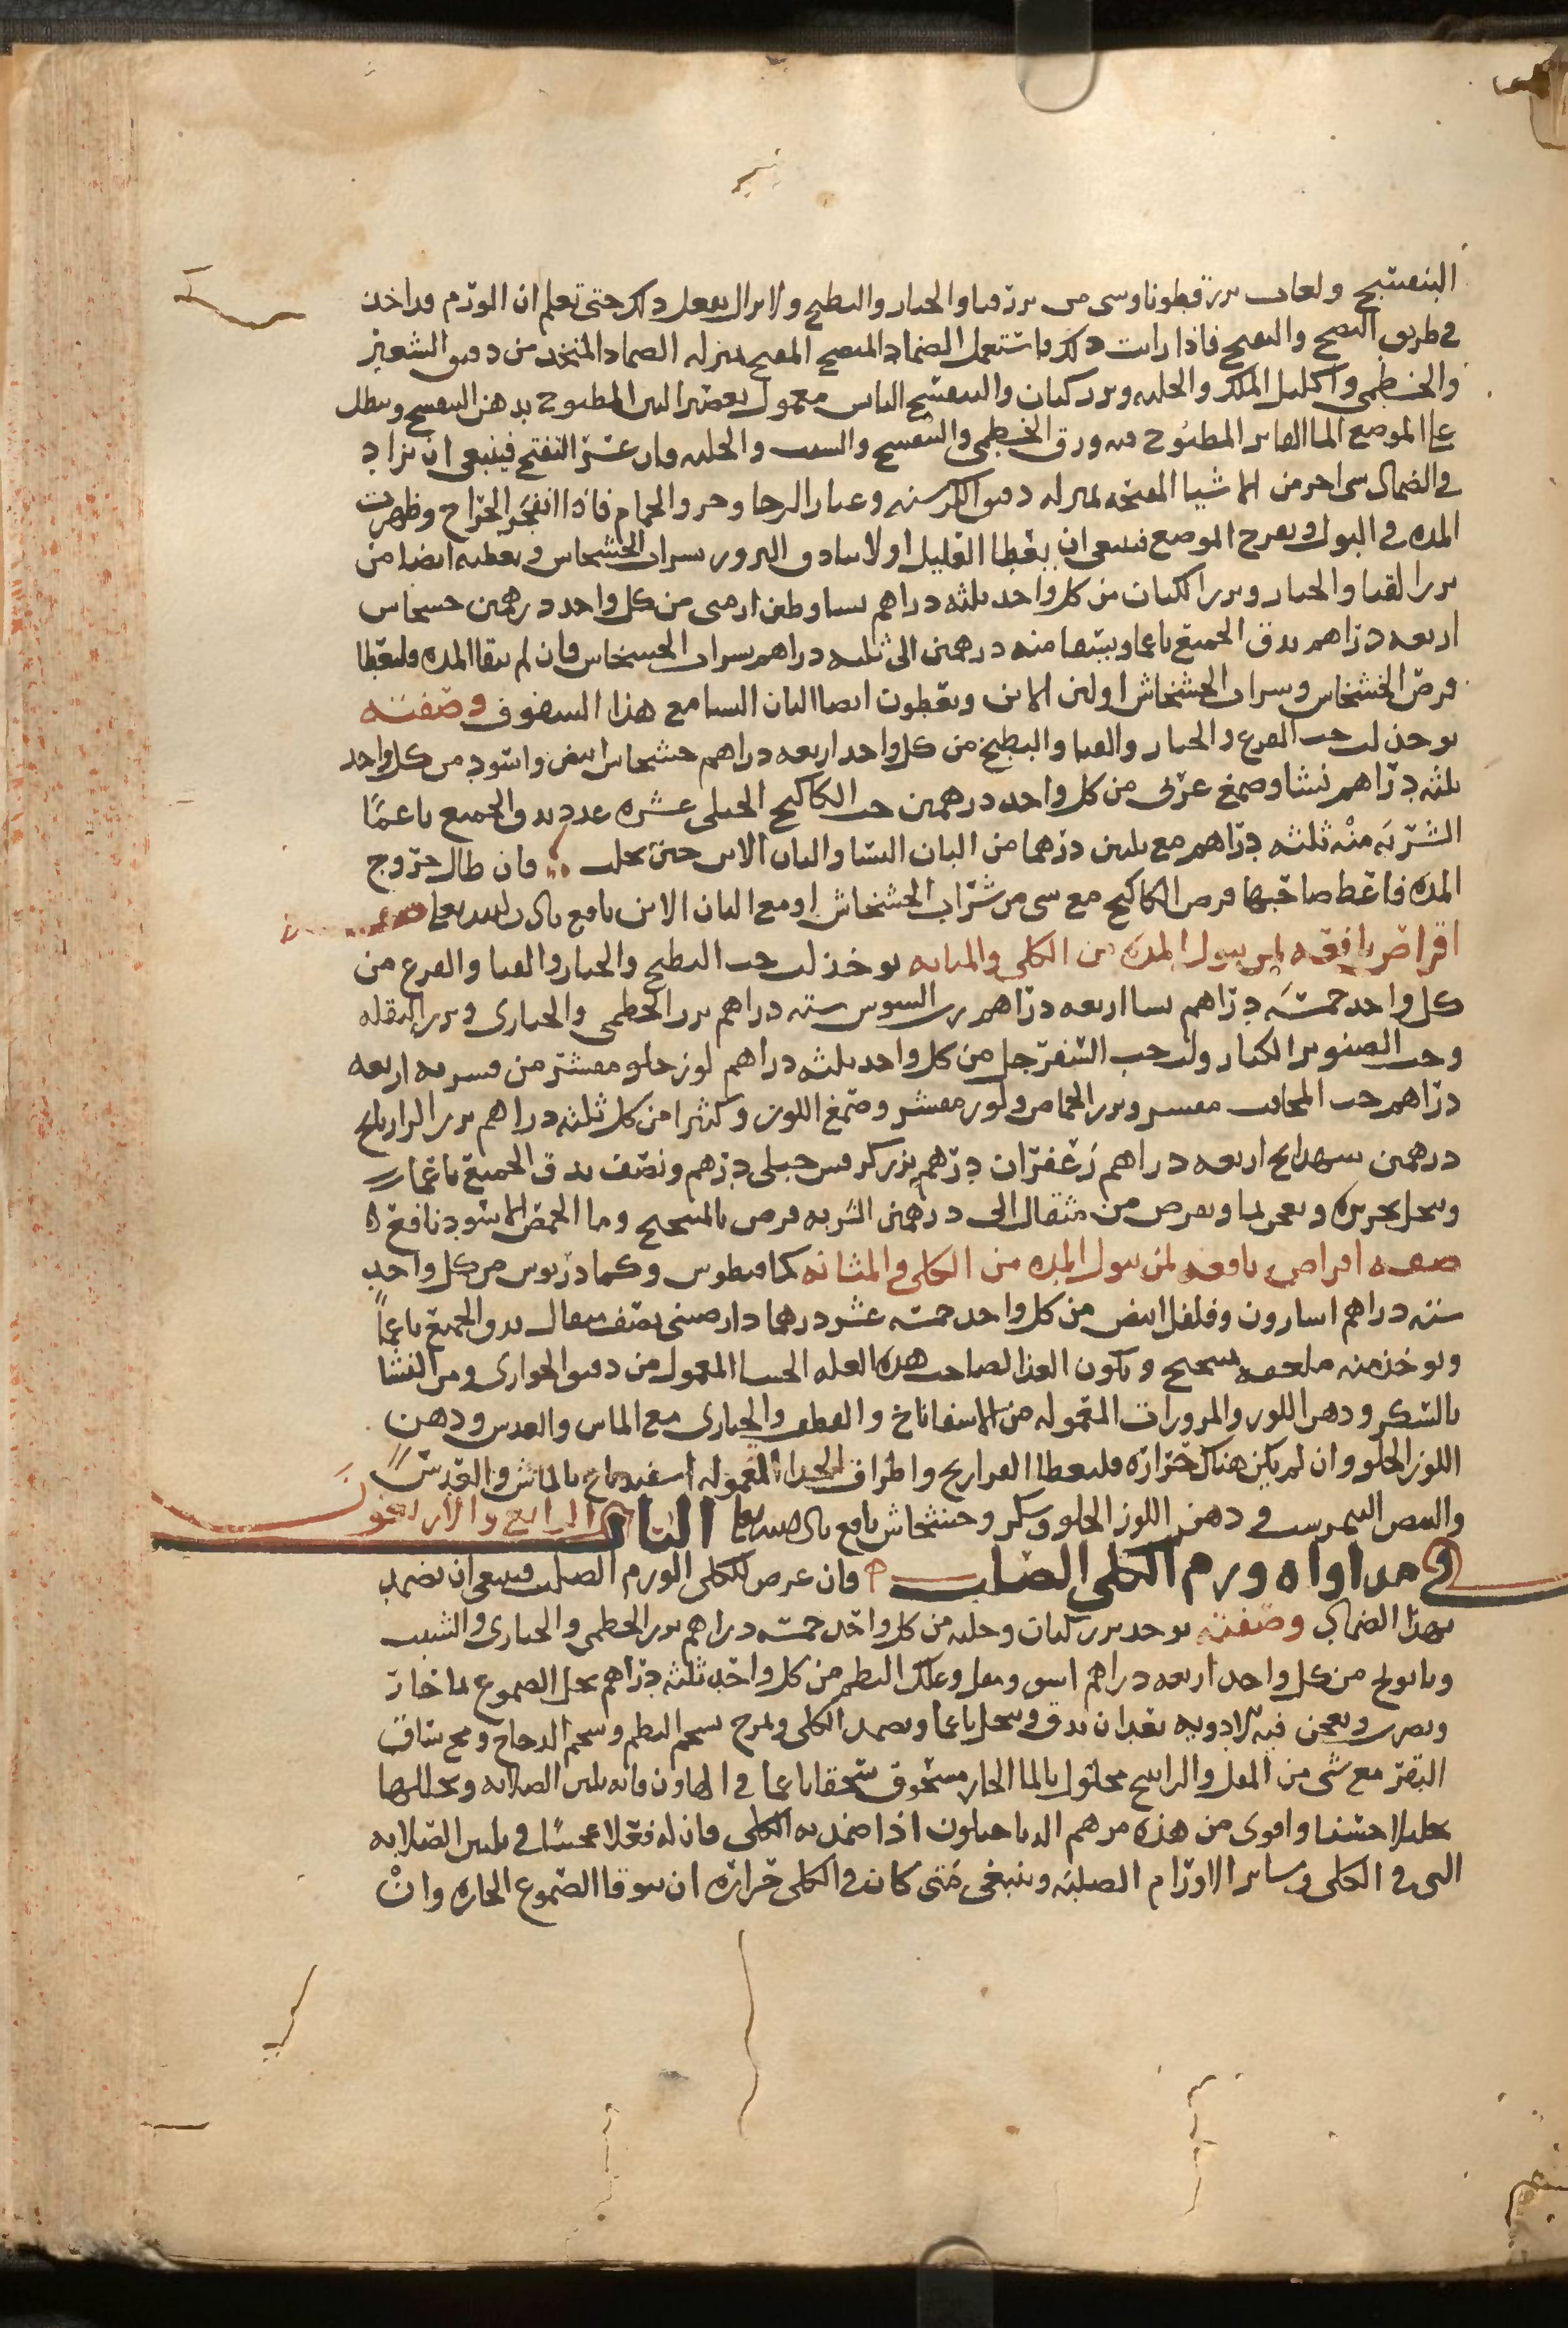 البنفسج ولعاب بزر قطونا وسى من بزر قثا والخيار والبطيخ ولا يزال يفعل ذلك حتى تعلم ان الورم قد اخذ
في طريق النضج والتفتح فاذا رايت ذلك فاستعمل الضماد المنضج المفتح بمنزله الضماد المتخذ من دقيق الشعير
والخطمي واكليل الملك والحلبه وبزر كتان والبنفسج اليابس معمول بعصير التين المطبوخ بدهن البنفسج وينطل
على الموضع الما الفاتر المطبوخ فيه ورق الخطمي والبنفسج والشبت والحلبه فان عسر التفتح فينبغي ان يزاد
في الضماد شى اخر من الاشيا المفتحه بمنزله دقيق الكرسنه وغبار الرحا وخر والحمام فاذا انفجر الخراج وظهرت
المده في البول وتفرح الموضع فينبغي ان يعطا القليل اولا بنادق البزور بشراب الخشخاش ويعطيه ايضا من
بزر القثا والخيار وبزر الكتان من كل واحد ثلثه دراهم نشا وطين ارمنى من كل واحد درهمين خشخاش
اربعه دراهم يدق الجميع ناعما ويسقا منه درهمين الى ثلثه دراهم بشراب الخشخاش فان لم ينقا المده فليعطا
قرص الخشخاش وشراب الخشخاش او لبن الاتن ويعطون ايضا البان النسا مع هذا السفوف وصفته
يوخذ لب حب القرع والخيار والقثا والبطيخ من كل واحد اربعه دراهم خشخاش ابيض واسود من كل واحد
ثلثه دراهم نشا وصمغ عربى من كل واحد درهمين حب الكاكنج الجبلى عشره عدد يدق الجميع ناعمًا
الشربه منه ثلثه دراهم مع ثلثين درهما من البان النسا والبان الاتن حين تحلب فان طال خروج
المده فاعط صاحبها قرص الكاكنج مع شى من شراب الخشخاش او مع البان الاتن نافع باذن الله تعلى
اقراص نافعه لمن يبول المده من الكلى والمثانه يوخذ لب حب البطيخ والخيار والقثا والقرع من
كل واحد خمسه دراهم نشا اربعه دراهم رب السوس سته دراهم بزر الخطمى والخبازى وبزر البقله
وحب الصنوبر الكبار ولب حب السفرجل من كل واحد ثلثه دراهم لوز حلو مقشر من قشريه اربعه
دراهم حب المحلب مقشر وبزر الحماض ولوز مقشر وصمغ اللوز وكثيرا من كل ثلثه دراهم بزر الرازيانج
درهمين شهدانج اربعه دراهم زعفران درهم بزر كرفس جبلى درهم ونصف يدق الجميع ناعما
وينخل بحريره ويعجن بما ويقرص من مثقال الى درهمين الشربه قرص بالميبختج وما الحمص الاسود نافع
صفه اقراص نافعه لمن يبول المده من الكلى والمثانه كمافيطوس وكمادريوس من كل واحد
سته دراهم اسارون وفلفل ابيض من كل واحد خمسه عشر درهما دارصينى نصف مثقال يدق الجميع ناعمًا
ويوخذ منه ملعقه بميبختج ويكون الغذا لصاحب هذه العله الحسا المعمول من دقيق الحوارى ومن النشا
بالسكر ودهن اللوز والمزورات المعموله من الاسفاناخ والقطف والخبازى مع الماش والعدس ودهن
اللوز الحلو وان لم يكن هناك حراره فليعطا الفراريج واطراف الجدا المعموله اسفيدباج بالماش والعدس
والبيض النيمرشت في دهن اللوز الحلو وسكر وخشخاش نافع باذن الله تعلى الباب الرابع والاربعون
في مداواه ورم الكلى الصلب فان عرض للكلى الورم الصلب فينبغي ان يضمد
بهذا الضماد وصفته يوخذ بزر كتان وحلبه من كل واحد خمسه دراهم بزر الخطمى والخبازى والشبت
وبابونج من كل واحد اربعه دراهم اشق ومقل وعلك البطم من كل واحد ثلثه دراهم يحل الصموغ بما حار
ويضرب ويعجن فيه الادويه بعد ان يدق وينخل ناعما ويضمد الكلى ويمرخ بشحم البط وشحم الدجاج ومخ ساق
البقر مع شى من المقل والراتينج محلول بالما الحار مسحوق سحقا ناعما في الهاون فانه يلين الصلابه ويحللها
تحليلا حسنا واقوى من هذه مرهم الدياخيلون اذا ضمد به الكلى فان له فعلا عجيبا في تليين الصلابه
التى في الكلى وساير الاورام الصلبه وينبغي متى كان في الكلى حراره ان يتوقا الصموغ الحاره وانْ